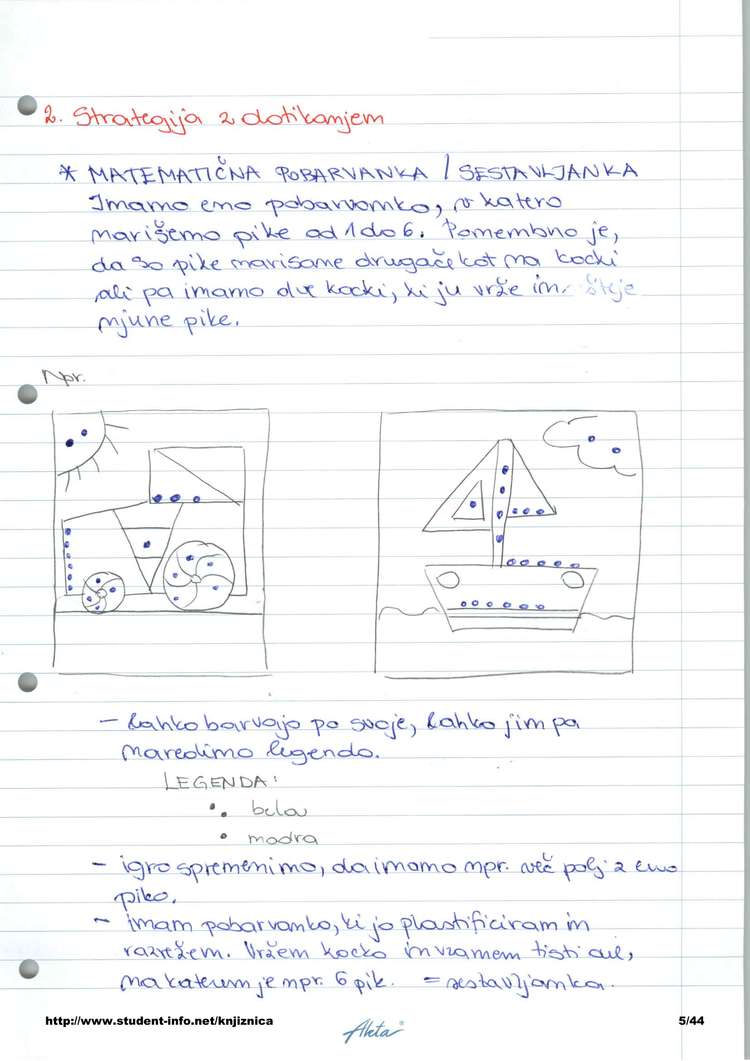 2. Strategija z dotikanjem
* MATEMATIČNA POBARVANKA / SESTAVLJANKA
Imamo eno pobarvanko, v katero
narišemo pike od 1 do 6. Pomembno je,
da so pike narisane drugače kot na kocki
ali pa imamo dve kocki, ki ju vrže in šteje
njune pike.
Npr.
- Lahko barvajo po svoje, lahko jim pa
naredimo legendo.
LEGENDA:
bela
modra
- igro spremenimo, da imamo npr. več polj z eno
piko.
- imam pobarvanko, ki jo plastificiram in
razrežem. Vržem kocko in vzamem tisti del,
na katerem je npr. 6 pik. = sestavljanka.
http://www.student-info.net/knjiznica
Akta
5/44